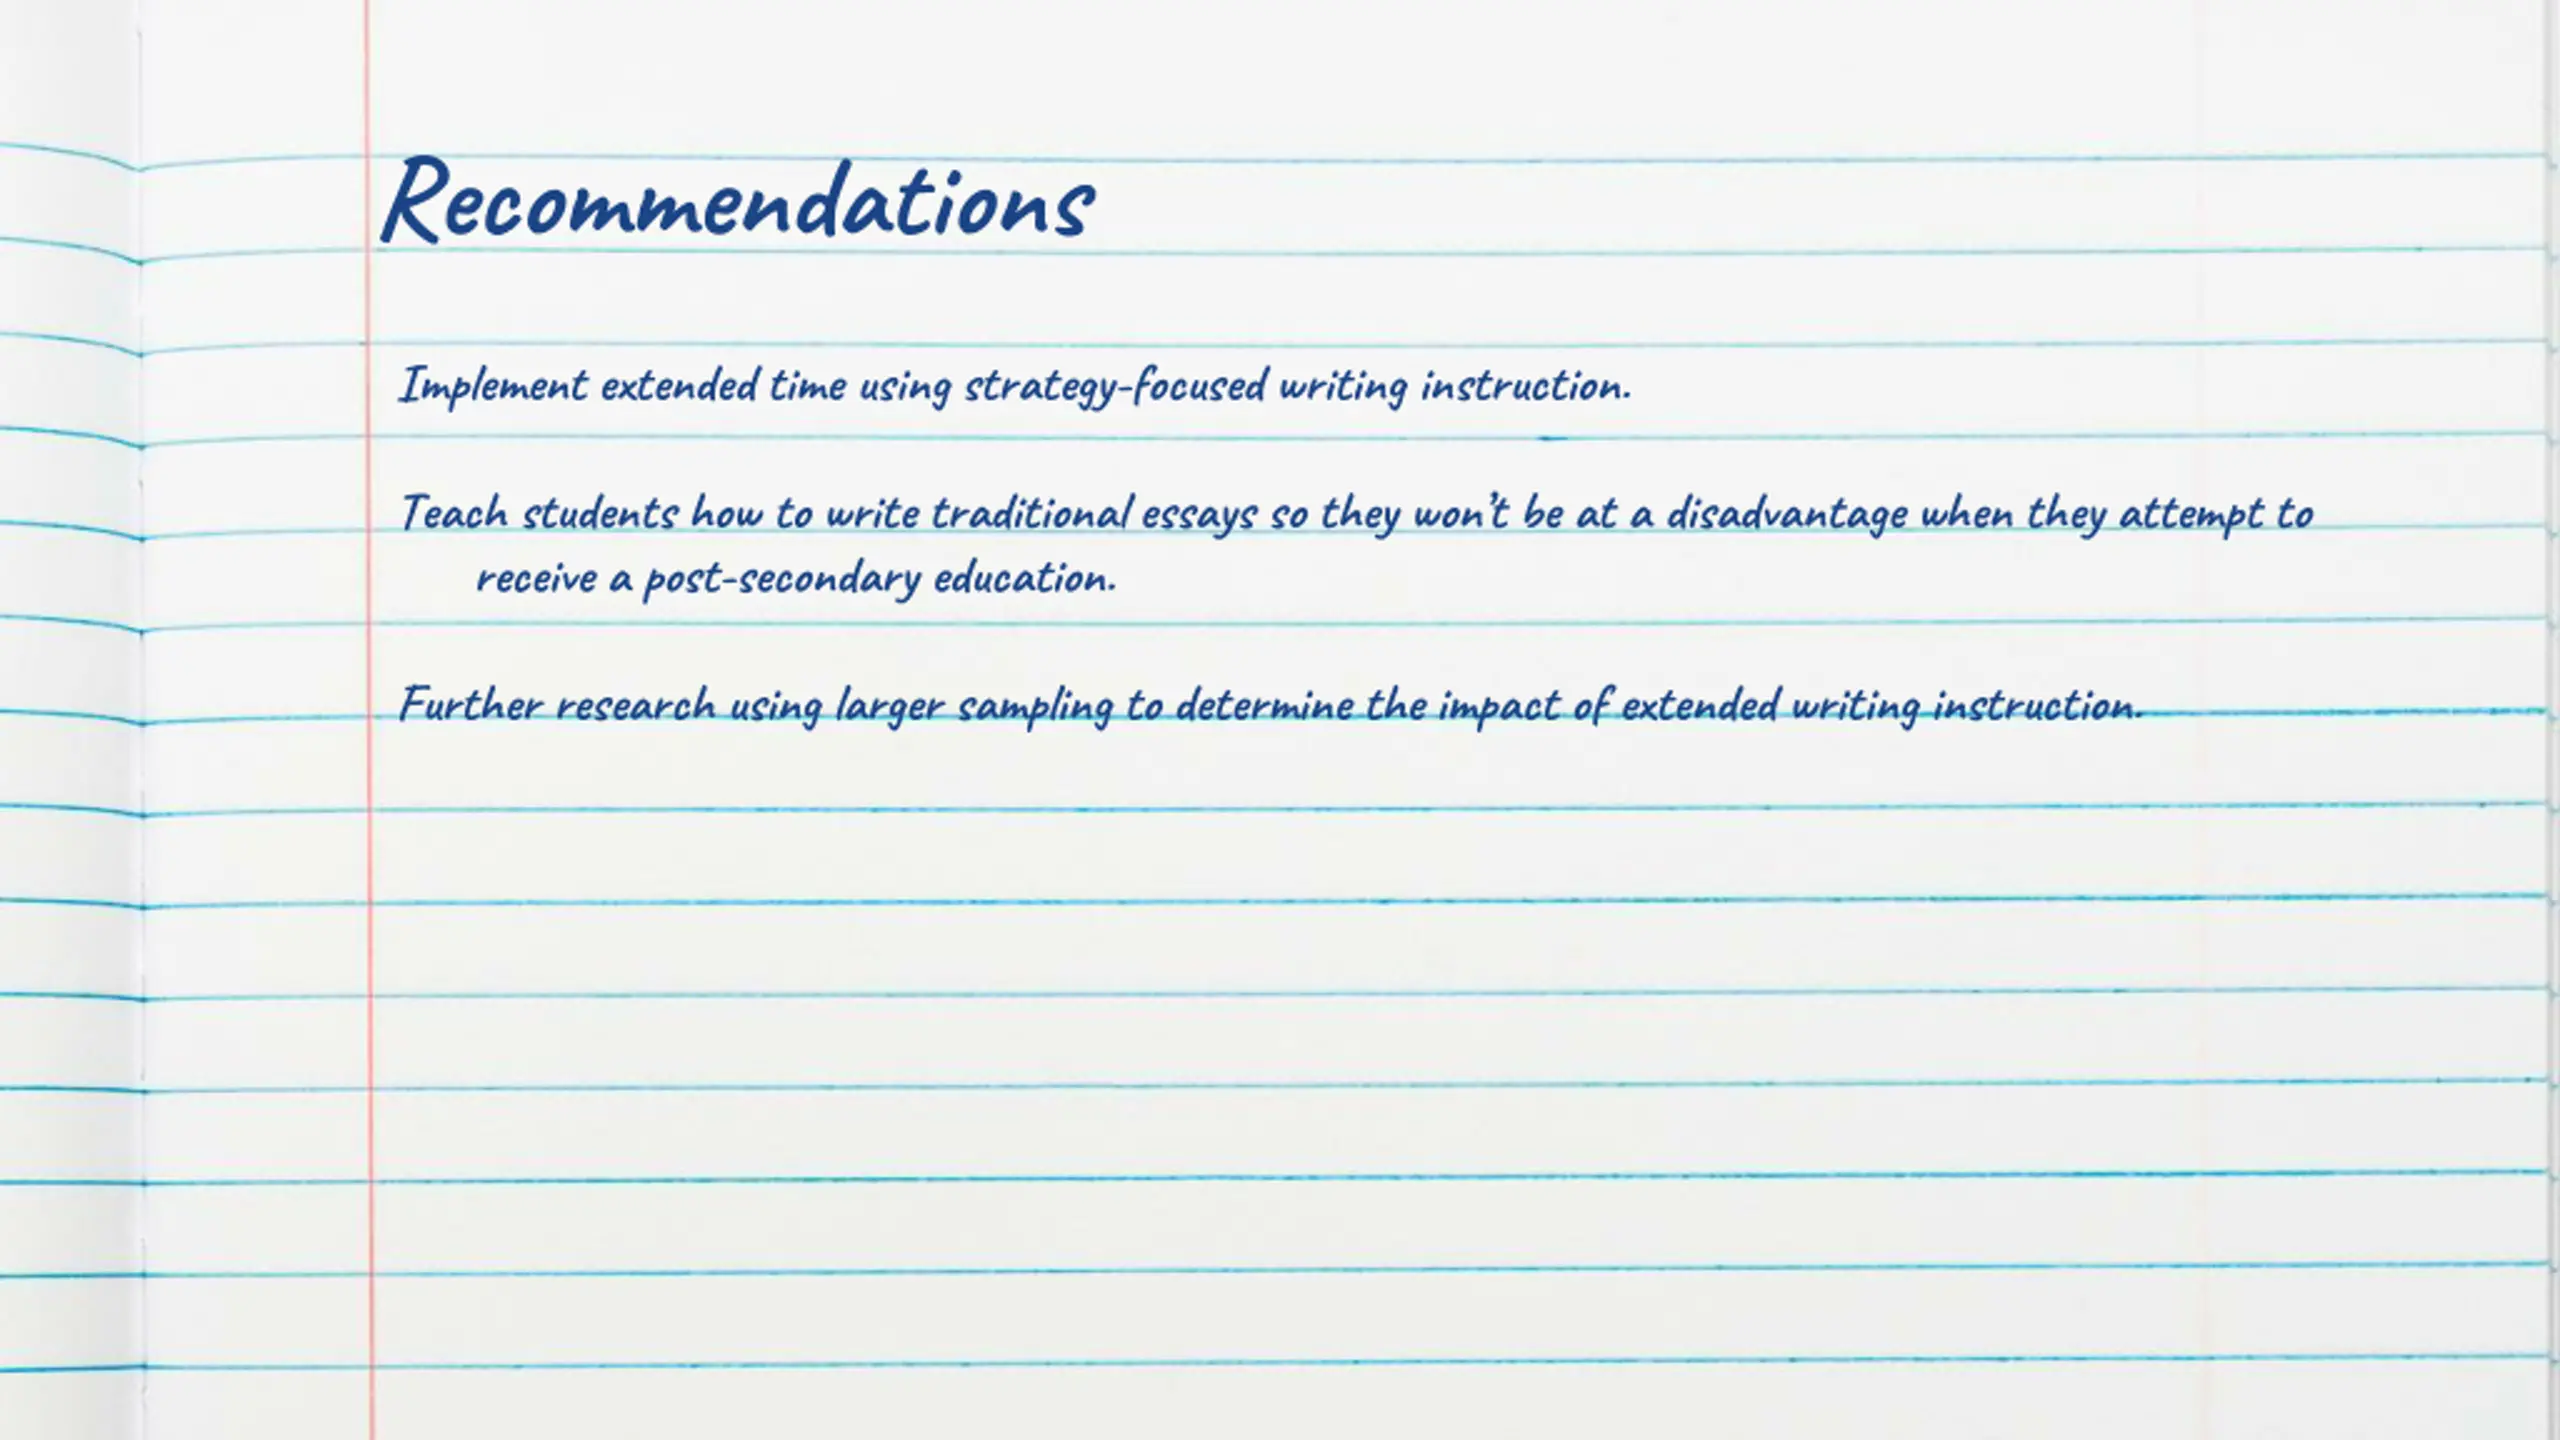 Recommendations
Implement extended time using strategy-focused writing instruction.
Teach students how to write traditional essays so they won’t be at a disadvantage when they attempt to
receive a post-secondary education.
Further research using larger sampling to determine the impact of extended writing instruction.